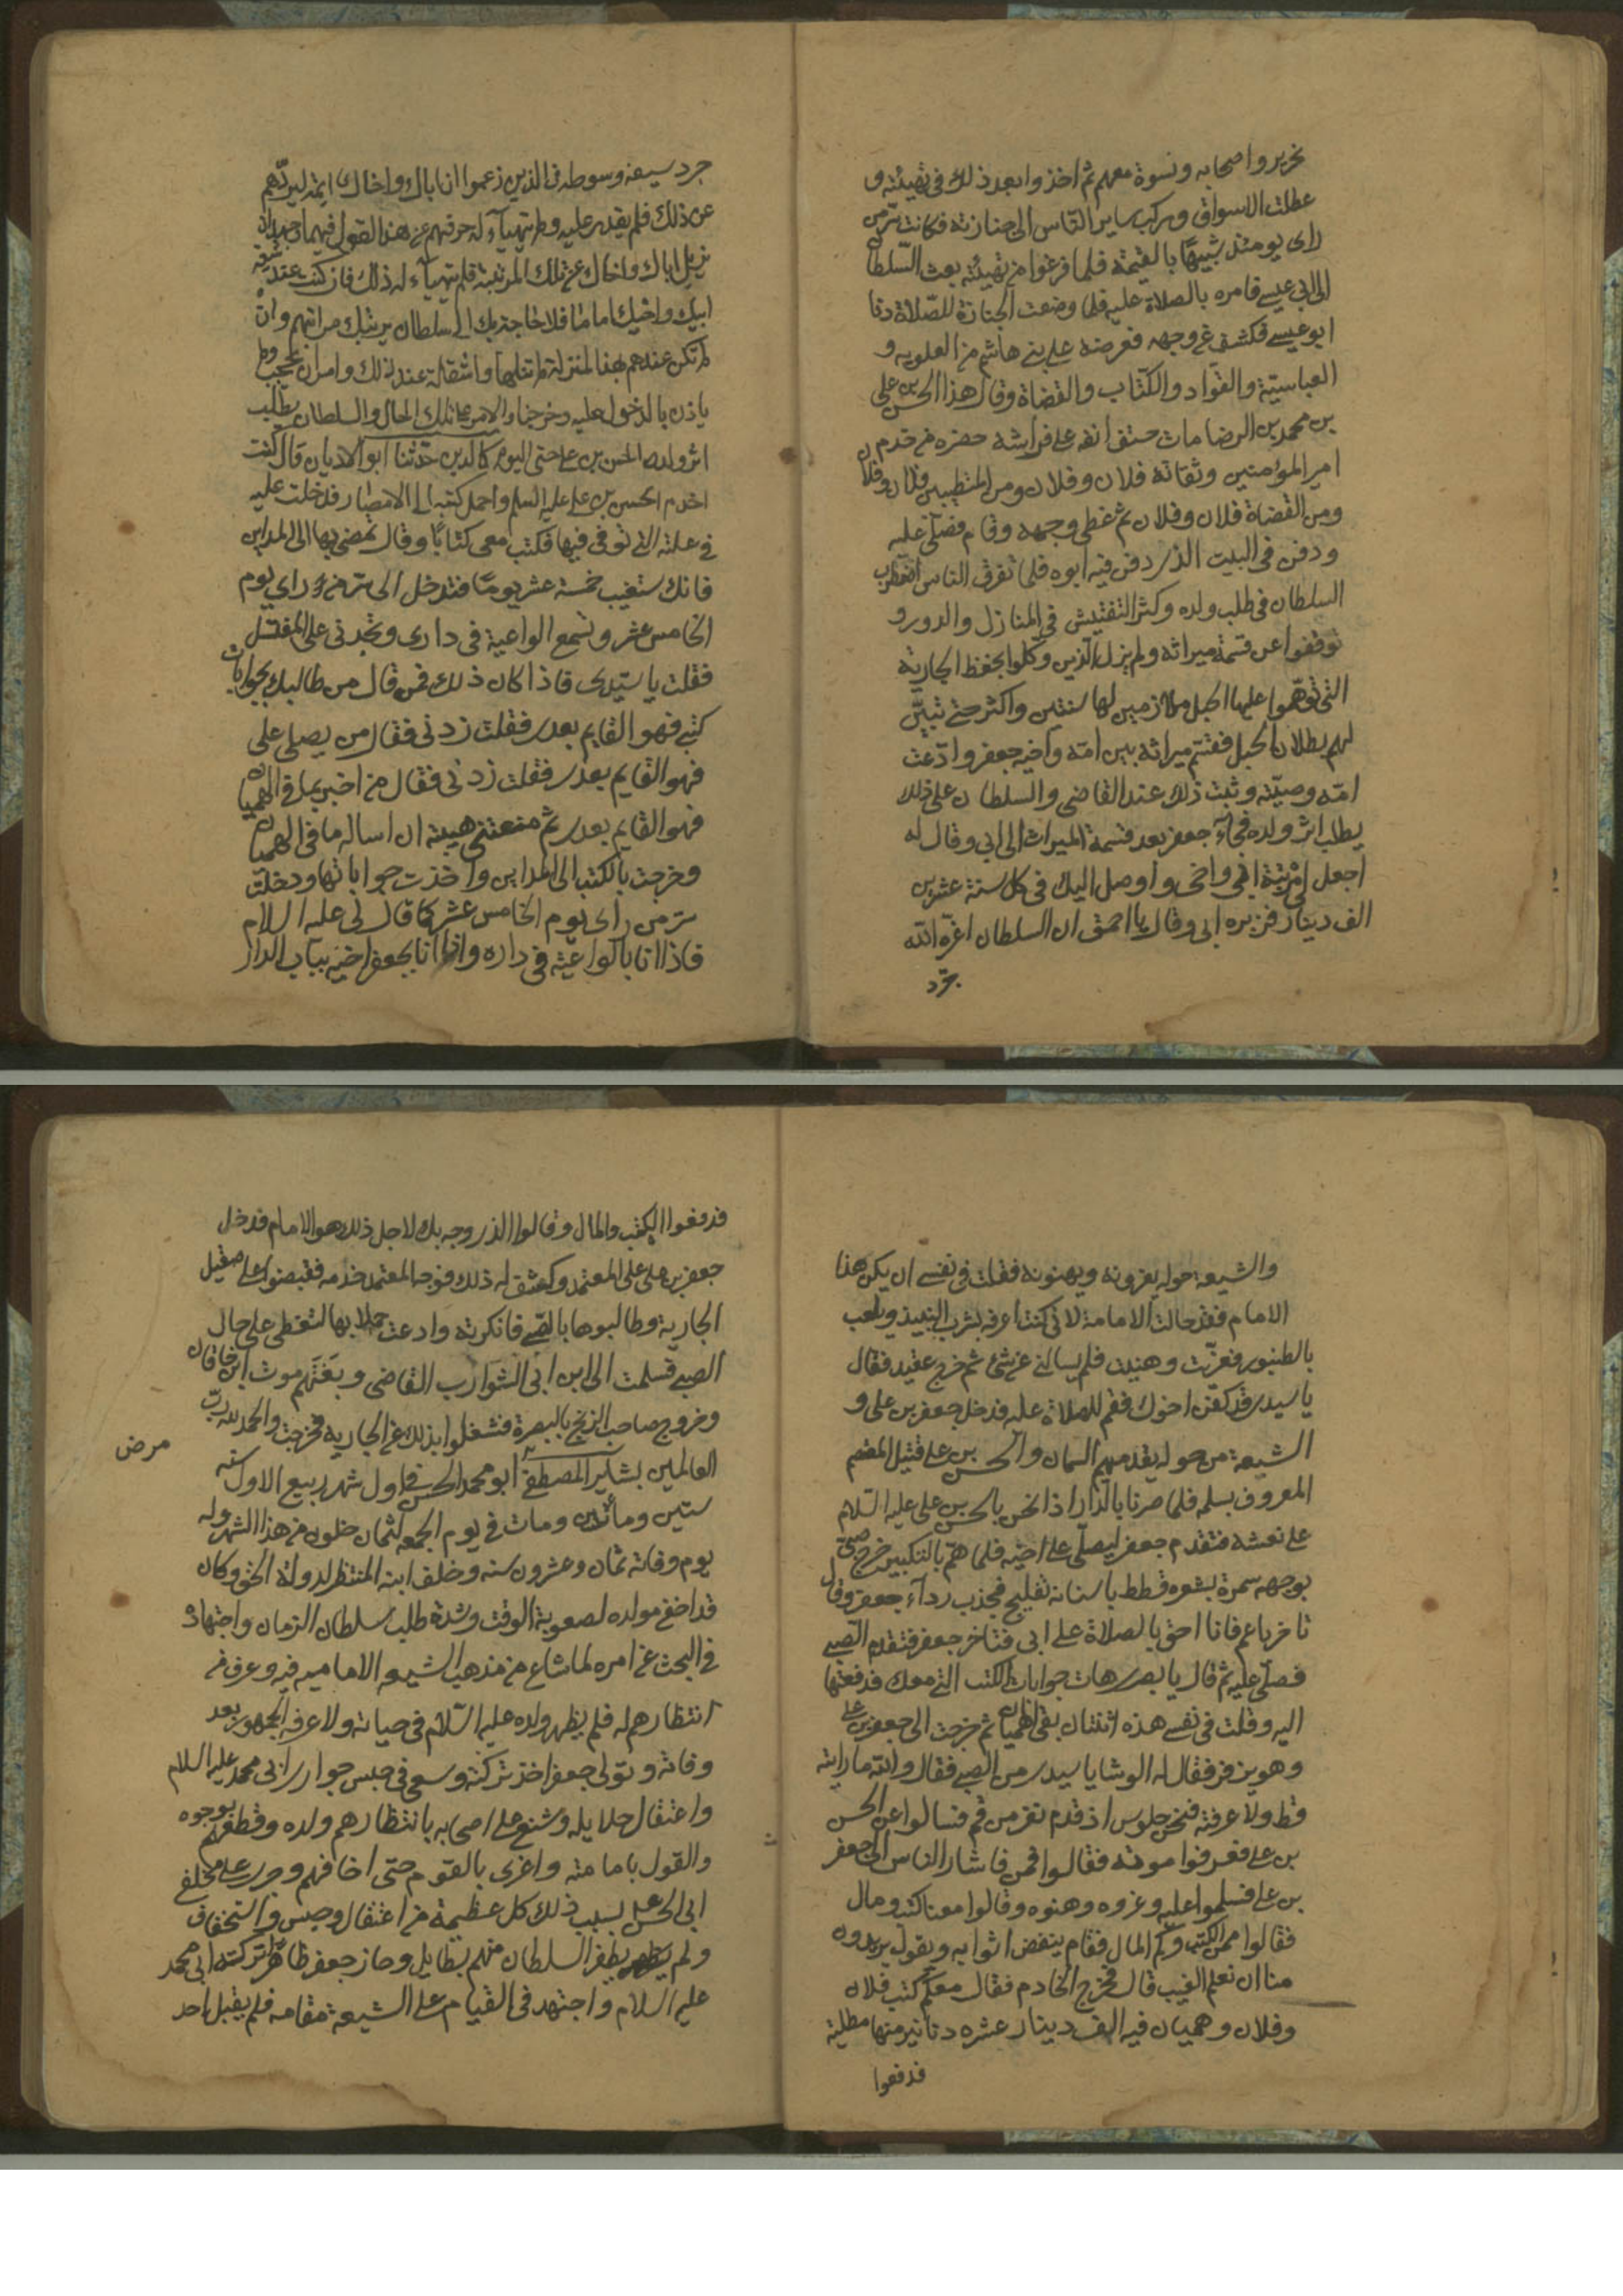 نحرير واصحابه ونسوة معهم ثم اخذوا بعد ذلك في تهيئته و
عطلت الاسواق وركب ساير الناس الى جنازته فكانت سر من
راى يومئذ شبيها بالقيمة فلما فرغوا من تهيئته بعث السلطان
الى ابي عيسى فامره بالصلاة عليه فلما وضعت الجنازة للصلاة دنا
ابو عيسى فكشف عن وجهه فعرضه على بني هاشم من العلويه و
العباسية والقواد والكتاب والقضاة وقال هذا الحسن بن علي
بن محمد بن الرضا مات حتف انفه على فراشه حضره من خدم
امير المؤمنين وثقاته فلان وفلان ومن المتطببين فلان وفلان
ومن القضاة فلان وفلان ثم غطى وجهه وقام فصلى عليه
ودفن في البيت الذي دفن فيه ابوه فلما تفرق الناس اضطرب
السلطان في طلب ولده وكثر التفتيش في المنازل والدور و
توقفوا عن قسمة ميراثه ولم يزل الذين وكلوا بحفظ الجارية
التي توهموا عليها الحبل ملازمين لها سنتين واكثر حتى تبين
لهم بطلان الحبل فقسم ميراثه بين امه واخيه جعفر وادعت
امه وصيته وثبت ذلك عند القاضي والسلطان على ذلك
يطلب اثر ولده فجاء جعفر بعد قسمة الميراث الى ابي وقال له
اجعل لي مرتبة ابي واخي واوصل اليك في كل سنة عشرين
الف دينار فزبره ابي وقال يا احمق ان السلطان اعزه الله
جرد
جرد سيفه وسوطه في الذين زعموا ان اباك واخاك ايمة ليردهم
عن ذلك فلم يقدر عليه ولم يتهياء له صرفهم عن هذا القول فيهما وجهد ان
يزيل اباك واخاك عن تلك المرتبة فلم يتهياء له ذلك فان كنت عند شيعة
ابيك واخيك اماما فلا حاجة بك الى سلطان يرتبك مراتبهم وان
لم تكن عندهم بهذا المنزلة لم تنلها واستقله عند ذلك وامر ان يحجب ولم
ياذن بالدخول عليه وخرجنا والامر على تلك الحال والسلطان يطلب
اثر ولد الحسن بن علي حتى اليوم كالدين حدثنا ابو الاديان قال كنت
اخدم الحسن بن علي عليه السلم واحمل كتبه الى الامصار فدخلت عليه
في علته التي توفي فيها فكتب معي كتابا وقال تمضي بها الى المداين
فانك ستغيب خمسة عشر يوما فتدخل الى سر من راي يوم
الخامس عشر وتسمع الواعية في داري وتجدني على المغتسل
فقلت يا سيدي فاذا كان ذلك فمن قال من طالبك بجوابات
كتبي فهو القايم بعدي فقلت زدني فقال من يصلي علي
فهو القايم بعدي فقلت زدني فقال من اخبر بما في الهميان
فهو القايم بعدي ثم منعتني هيبته ان اساله ما في الهميان
وخرجت بالكتب الى المداين واخذت جواباتها ودخلت
سر من راى يوم الخامس عشر كما قال لي عليه السلام
فاذا انا بالواعية في داره واذا انا بجعفر اخيه بباب الدار
والشيعة حوله يعزونه ويهنونه فقلت في نفسي ان يكن هذا
الامام فقد حالت الامامة لاني كنت اعرفه بشرب النبيذ ويلعب
بالطنبور فعزيت وهنيت فلم يسالني عن شئ ثم خرج عقيد فقال
يا سيدي قد كفن اخوك فقم للصلاة عليه فدخل جعفر بن علي و
الشيعة من حوله يقدمهم السمان والحسن بن علي قتيل المعتصم
المعروف بسلمه فلما صرنا بالدار اذا نحن بالحسن بن علي عليه السلام
على نعشه فتقدم جعفر ليصلي على اخيه فلما هم بالتكبير خرج صبي
بوجهه سمرة بشعره قطط باسنانه تفليج فجذب رداء جعفر وقال
تاخر يا عم فانا احق بالصلاة على ابي فتاخر جعفر فتقدم الصبي
فصلى عليه ثم قال يا بصري هات جوابات الكتب التي معك فدفعتها
اليه وقلت في نفسي هذه اثنتان بقي الهميان ثم خرجت الى جعفر بن علي
وهو يزفر فقال له الوشا يا سيدي من الصبي فقال والله ما رايته
قط ولا عرفته فنحن جلوس اذ قدم نفر من قم فسالوا عن الحسن
بن علي فعرفوا موته فقالوا فمن فاشار الناس الى جعفر
بن علي فسلموا عليه وعزوه وهنوه وقالوا معنا كتب ومال
فقالوا ممن الكتب وكم المال فقام ينفض اثوابه ويقول يريدون
منا ان نعلم الغيب قال فخرج الخادم فقال معكم كتب فلان
وفلان وهميان فيه الف دينار عشره دنانير منها مطلية
فدفعوا
فدفعوا الكتب والمال وقالوا الذي وجه بك لاجل ذلك هو الامام فدخل
جعفر بن علي على المعتمد وكشف له ذلك فوجه المعتمد خدمه فقبضوا على صقيل
الجارية وطالبوها بالصبي فانكرته وادعت حملا بها لتغطي على حال
الصبي فسلمت الى ابن ابي الشوارب القاضي وبغتهم موت ابن خاقان
وخروج صاحب الزنج بالبصرة فشغلوا بذلك عن الجارية فخرجت والحمد لله رب
العالمين بشاير المصطفى ابو محمد الحسن في اول شهر ربيع الاول سنه
مرض
ستين ومائتين ومات في يوم الجمعه لثمان خلون من هذا الشهر وله
يوم وفاته ثمان وعشرون سنه وخلف ابنه المنتظر لدولة الحق وكان
قد اخفى مولده لصعوبة الوقت وشدة طلب سلطان الزمان واجتهاده
في البحث عن امره لما شاع من مذهب الشيعه الاماميه فيه وعرف من
انتظارهم له فلم يظهر ولده عليه السلام في حياته ولا عرفه الجمهور بعد
وفاته وتولى جعفر اخذ تركته وسعى في حبس جواري ابي محمد عليه السلام
واعتقال حلايله وشنع على اصحابه بانتظارهم ولده وقطعهم بوجوده
والقول بامامته واغرى بالقوم حتى اخافهم وجرى على مخلفي
ابي الحسن بسبب ذلك كل عظيمة من اعتقال وحبس واستخفاف
ولم يظفر السلطان منهم بطايل وحاز جعفر ظاهر تركته ابي محمد
عليه السلام واجتهد في القيام على الشيعة مقامه فلم يقبل احد